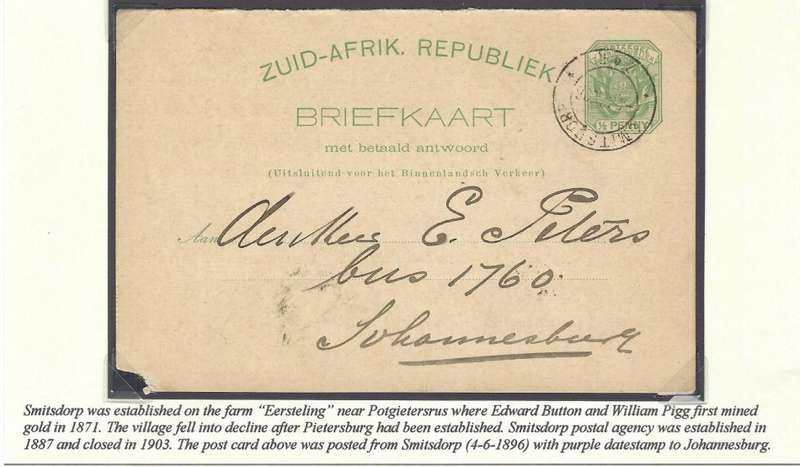 ZUID-AFRIK. REPUBLIEK
BRIEFKAART
met betaald antwoord
(Uitsluitend voor het Binnenlandsch Verkeer)
½ PENNY
SMITSDORP
Aan den Heer E. Peters
bus 1760
Johannesburg
Smitsdorp was established on the farm “Eersteling” near Potgietersrus where Edward Button and William Pigg first mined
gold in 1871. The village fell into decline after Pietersburg had been established. Smitsdorp postal agency was established in
1887 and closed in 1903. The post card above was posted from Smitsdorp (4-6-1896) with purple datestamp to Johannesburg.